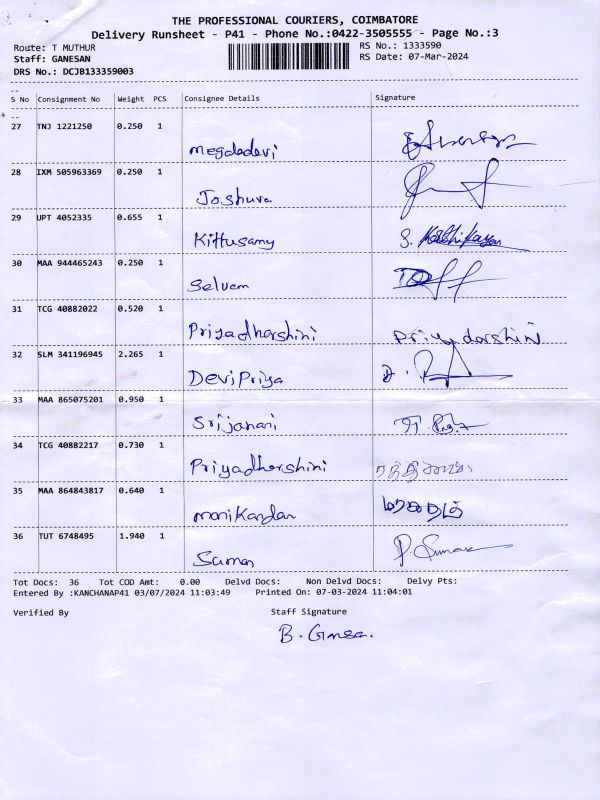 THE PROFESSIONAL COURIERS, COIMBATORE
Delivery Runsheet - P41 - Phone No.:0422-3505555 - Page No.:3
Route: T MUTHUR RS No.: 1333590
Staff: GANESAN RS Date: 07-Mar-2024
DRS No.: DCJB133359003
S No Consignment No Weight PCS Consignee Details Signature
27 TNJ 1221250 0.250 1
Megaladevi
28 IXM 505963369 0.250 1
Joshuva
29 UPT 4052335 0.655 1
Kittusamy S. Karthikayan
30 MAA 944465243 0.250 1
Selvam
31 TCG 40882022 0.520 1
Priyadharshini Priyadarshini
32 SLM 341196945 2.265 1
DeviPriya
33 MAA 865075201 0.950 1
Srijanani
34 TCG 40882217 0.730 1
Priyadharshini
35 MAA 864843817 0.640 1
Manikandan
36 TUT 6748495 1.940 1
Suman P. Suman
Tot Docs: 36 Tot COD Amt: 0.00 Delvd Docs: Non Delvd Docs: Delvy Pts:
Entered By :KANCHANAP41 03/07/2024 11:03:49 Printed On: 07-03-2024 11:04:01
Verified By Staff Signature
B. Ganesa.